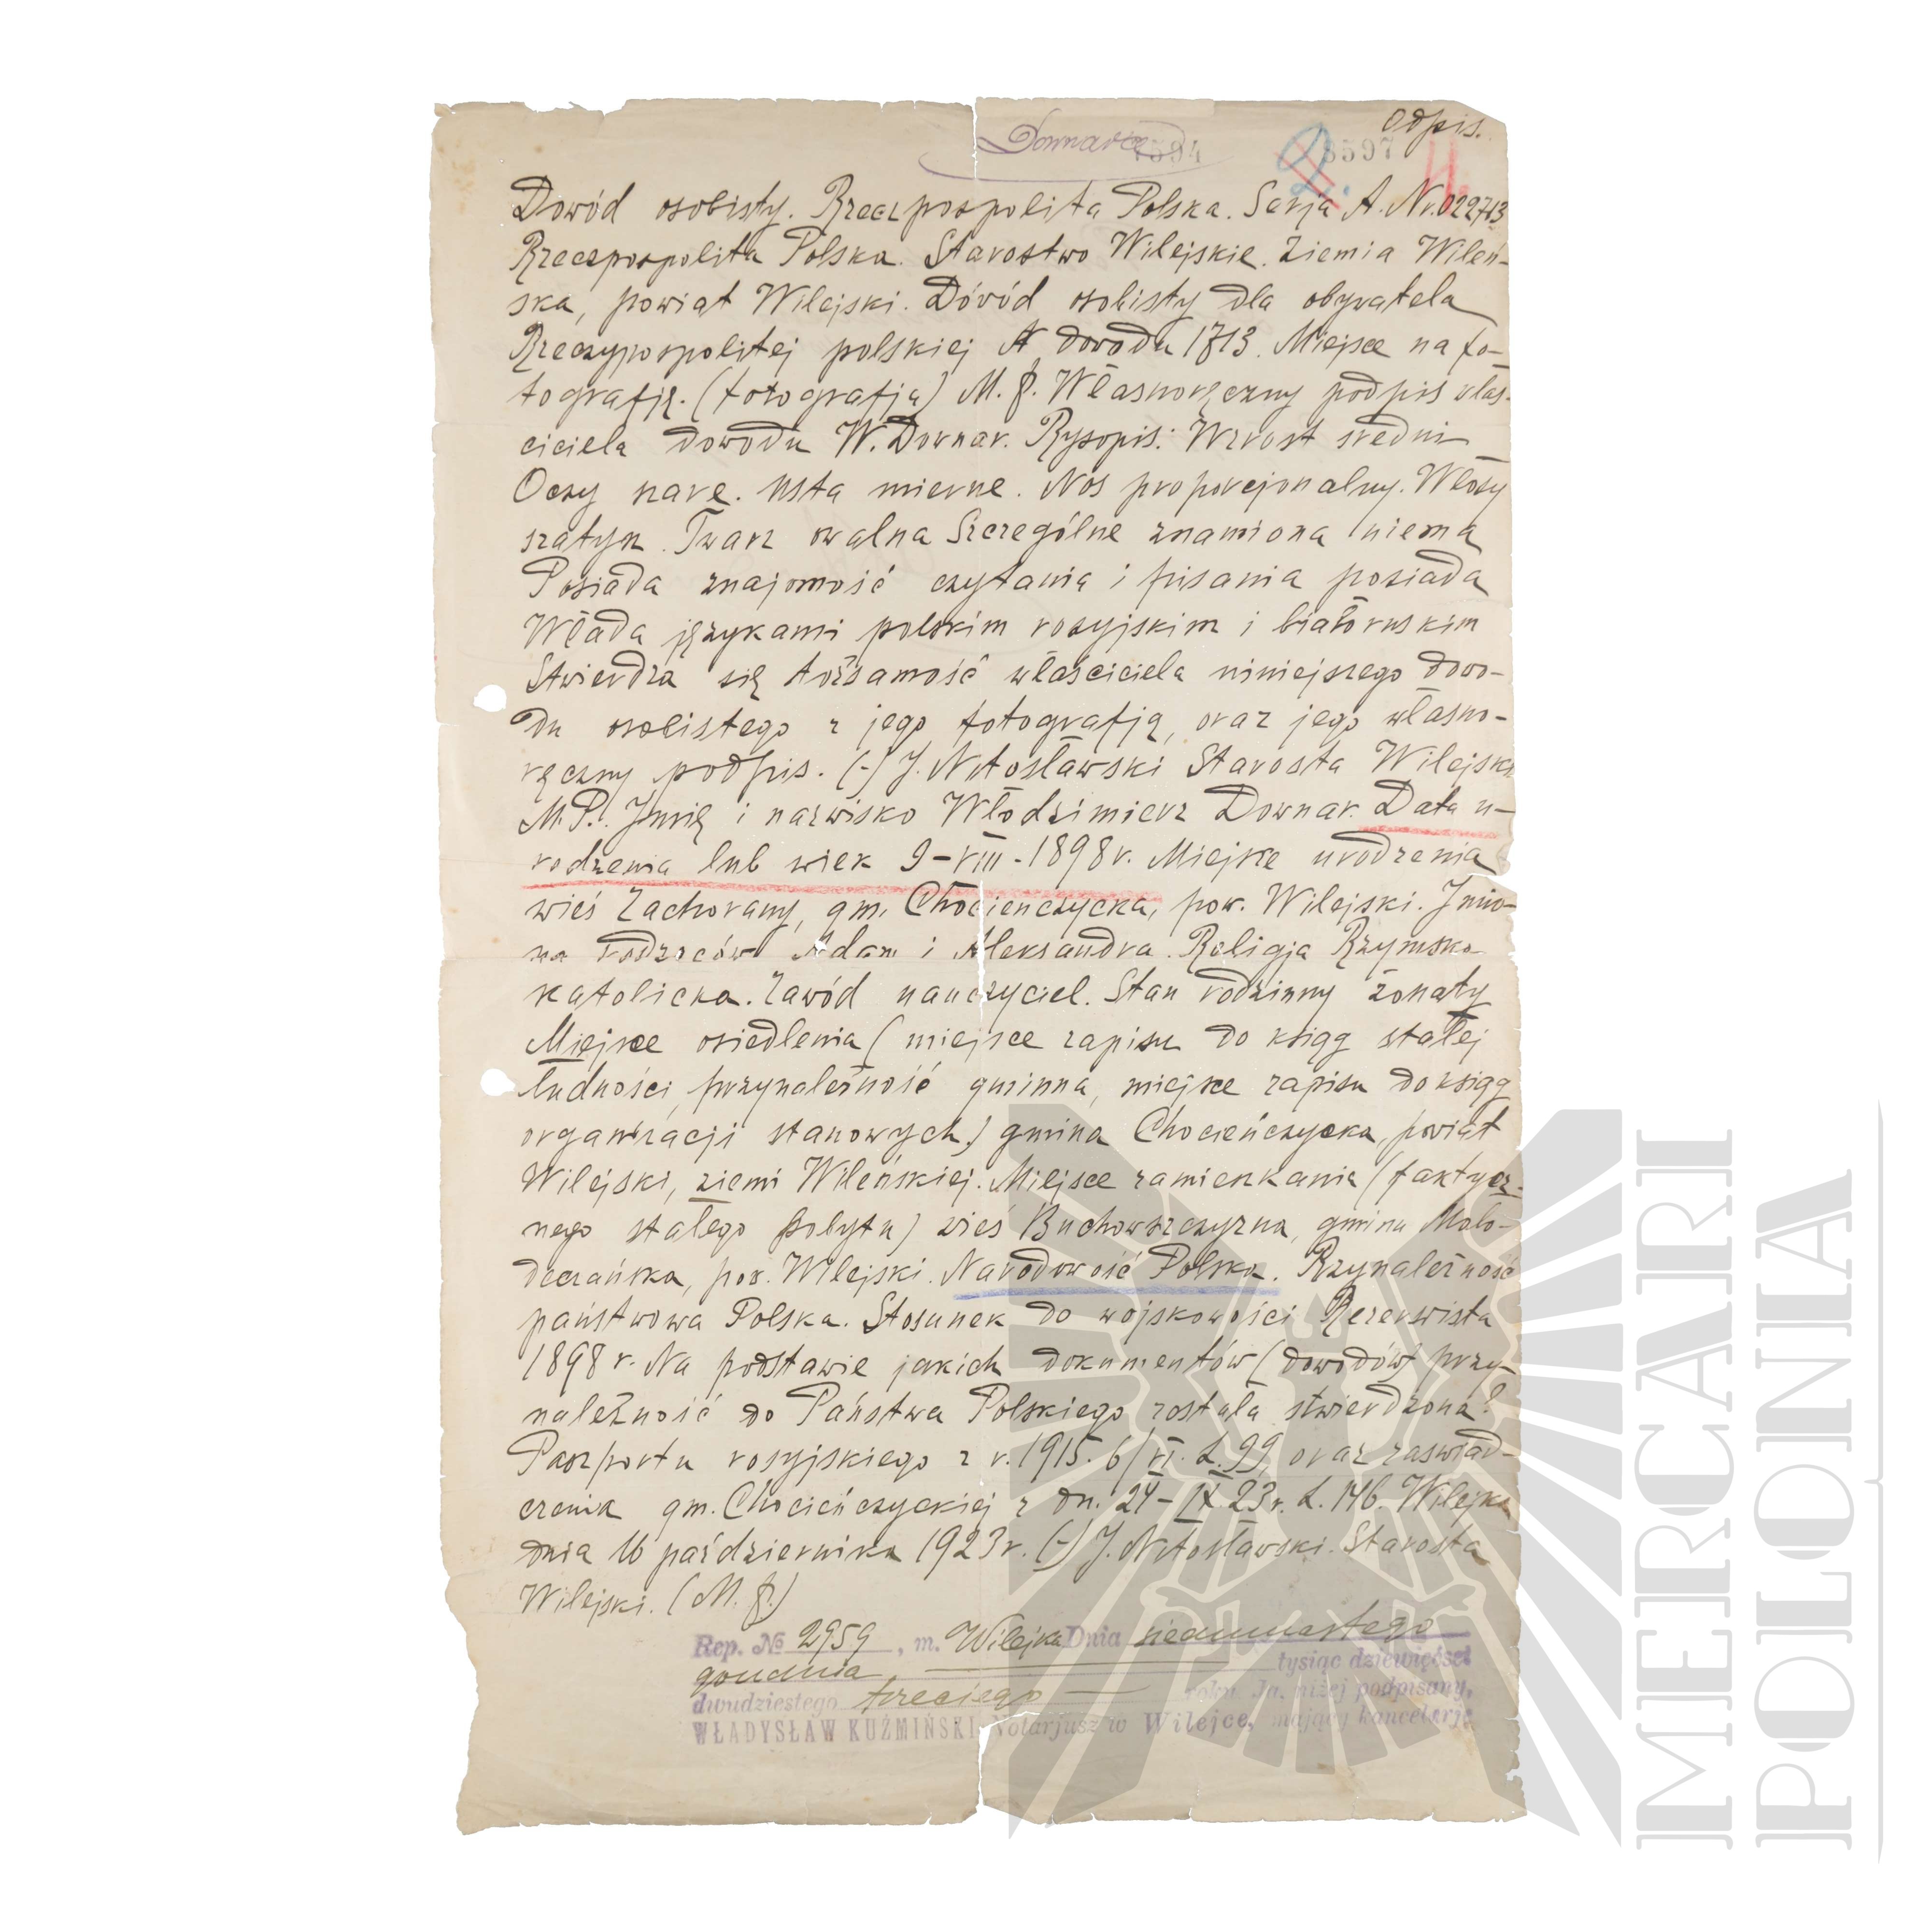 Odpis.
Downar
7594
8597
2.
4.
Dowód osobisty. Rzeczpospolita Polska. Serja A. Nr. 022713
Rzeczpospolita Polska. Starostwo Wilejskie. Ziemia Wileń-
ska, powiat Wilejski. Dówód osobisty dla obywatela
Rzeczypospolitej polskiej № dowodu 1713. Miejsce na fo-
tografję. (fotografja) M. p. Własnoręczny podpis włas-
ciciela dowodu W. Downar. Rysopis: Wzrost średni
Oczy szare. Usta mierne. Nos proporcjonalny. Włosy
szatyn. Twarz owalna Szczególne znamiona niema
Posiada znajomość czytania i pisania posiada
Włada językami polskim rosyjskim i białoruskim
Stwierdza się tożsamość właściciela niniejszego dowo-
du osobistego z jego fotografją, oraz jego własno-
ręczny podpis. (-) J. Nitosławski Starosta Wilejski
M. P. Imię i nazwisko Włodzimierz Downar. Data u-
rodzenia lub wiek 9-VIII-1898 r. Miejsce urodzenia
wieś Zachowany, gm. Chocieńczycka, pow. Wilejski. Imio-
na rodziców Adam i Aleksandra. Religja Rzymsko
Katolicka. Zawód nauczyciel. Stan rodzinny żonaty
Miejsce osiedlenia (miejsce zapisu do ksiąg stałej
ludności, przynależność gminna, miejsce zapisu do ksiąg
organizacji stanowych) gmina Chocieńczycka, powiat
Wilejski, ziemi Wileńskiej. Miejsce zamieszkania (faktycz-
nego stałego pobytu) wieś Buchowszczyzna, gmina Moło-
deczańska, pow. Wilejski. Narodowość Polska. Przynależność
państwowa Polska. Stosunek do wojskowości Rezerwista
1898 r. Na podstawie jakich dokumentów (dowodów) przy-
należność do Państwa Polskiego została stwierdzona?
Paszportu rosyjskiego z r. 1915. 6/VI. L. 99, oraz zaświad-
czenia gm. Chocieńczyckiej z dn. 24-IX 23 r. L. 146. Wilejka
dnia 16 października 1923 r. (-) J. Nitosławski. Starosta
Wilejski. (M. p.)
Rep. № 2959, m. Wilejka Dnia siedemnastego
grudnia, tysiąc dziewięćset
dwudziestego trzeciego roku. Ja, niżej podpisany,
WŁADYSŁAW KUŹMIŃSKI, Notarjusz w Wilejce, mający kancelarję
MERCARI
POLONIA